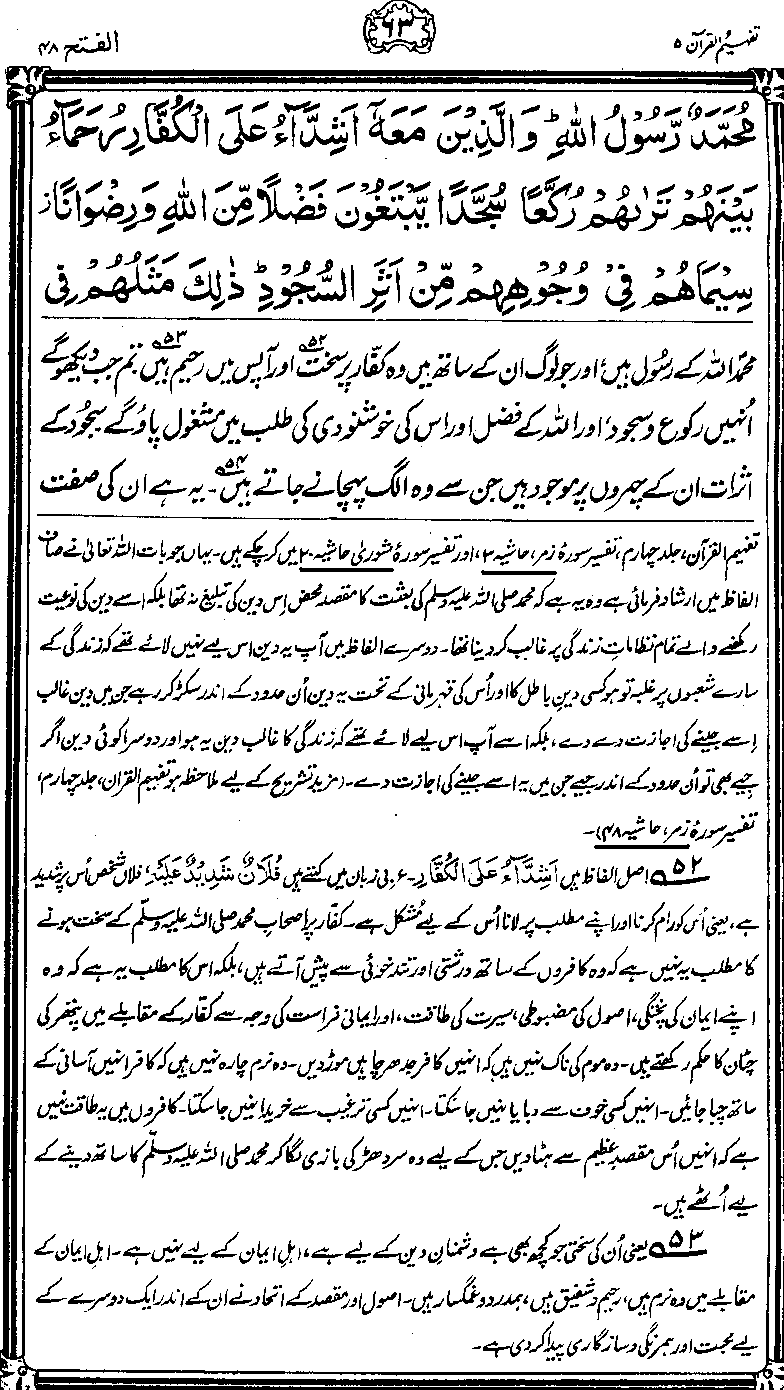 تفہیم القرآن ۵
۶۳
الفتح ۴۸
مُحَمَّدٌ رَّسُوْلُ اللّٰهِ ؕ وَالَّذِيْنَ مَعَهٗۤ اَشِدَّآءُ عَلَى الْكُفَّارِ رُحَمَآءُ
بَيْنَهُمْ تَرٰىهُمْ رُكَّعًا سُجَّدًا يَّبْتَغُوْنَ فَضْلًا مِّنَ اللّٰهِ وَرِضْوَانًا ز
سِيْمَاهُمْ فِيْ وُجُوْهِهِمْ مِّنْ اَثَرِ السُّجُوْدِ ؕ ذٰلِكَ مَثَلُهُمْ فِي
محمدؐ اللہ کے رسول ہیں، اور جو لوگ ان کے ساتھ ہیں وہ کفار پر سخت ۵۲ اور آپس میں رحیم ہیں ۵۳ تم جب دیکھو گے
اُنہیں رکوع و سجود، اور اللہ کے فضل اور اس کی خوشنودی کی طلب میں مشغول پاؤ گے۔ سجود کے
اثرات ان کے چہروں پر موجود ہیں جن سے وہ الگ پہچانے جاتے ہیں ۵۴۔ یہ ہے ان کی صفت
تفہیم القرآن، جلد چہارم، تفسیر سورۂ زمر، حاشیہ ۳، اور تفسیر سورۂ شوریٰ حاشیہ ۲۰ میں کر چکے ہیں۔ یہاں جو بات اللہ تعالیٰ نے صاف
الفاظ میں ارشاد فرمائی ہے وہ یہ ہے کہ محمد صلی اللہ علیہ وسلم کی بعثت کا مقصد محض اِس دین کی تبلیغ نہ تھا بلکہ اسے دین کی نوعیت
رکھنے والے تمام نظاماتِ زندگی پر غالب کر دینا تھا۔ دوسرے الفاظ میں آپ یہ دین اس لیے نہیں لائے تھے کہ زندگی کے
سارے شعبوں پر غلبہ تو ہو کسی دینِ باطل کا اور اُس کی قہرمانی کے تحت یہ دین اُن حدود کے اندر سکڑ کر رہے جن میں دینِ غالب
اِسے جینے کی اجازت دے دے، بلکہ اسے آپ اس لیے لائے تھے کہ زندگی کا غالب دین یہ ہو اور دوسرا کوئی دین اگر
جیے بھی تو اُن حدود کے اندر جیے جن میں یہ اسے جینے کی اجازت دے۔ (مزید تشریح کے لیے ملاحظہ ہو تفہیم القرآن، جلد چہارم،
تفسیر سورۂ زمر، حاشیہ ۴۸)۔
۵۲ اصل الفاظ ہیں اَشِدَّآءُ عَلَى الْكُفَّارِ۔ عربی زبان میں کہتے ہیں فُلَانٌ شَدِيْدٌ عَلَيْهِ، فلاں شخص اُس پر شدید
ہے، یعنی اُس کو رام کرنا اور اپنے مطلب پر لانا اُس کے لیے مُشکل ہے۔ کفار پر اصحابِ محمد صلی اللہ علیہ وسلم کے سخت ہونے
کا مطلب یہ نہیں ہے کہ وہ کافروں کے ساتھ درشتی اور تند خوئی سے پیش آتے ہیں، بلکہ اس کا مطلب یہ ہے کہ وہ
اپنے ایمان کی پختگی، اصول کی مضبوطی، سیرت کی طاقت، اور ایمانی فراست کی وجہ سے کفار کے مقابلے میں پتھر کی
چٹان کا حکم رکھتے ہیں۔ وہ موم کی ناک نہیں ہیں کہ انہیں کافر جدھر چاہیں موڑ دیں۔ وہ نرم چارہ نہیں ہیں کہ کافر انہیں آسانی کے
ساتھ چبا جائیں۔ انہیں کسی خوف سے دبایا نہیں جا سکتا۔ انہیں کسی ترغیب سے خریدا نہیں جا سکتا۔ کافروں میں یہ طاقت نہیں
ہے کہ انہیں اُس مقصدِ عظیم سے ہٹا دیں جس کے لیے وہ سر دھڑ کی بازی لگا کر محمد صلی اللہ علیہ وسلم کا ساتھ دینے کے
لیے اُٹھے ہیں۔
۵۳ یعنی اُن کی سختی جو کچھ بھی ہے دشمنانِ دین کے لیے ہے، اہلِ ایمان کے لیے نہیں ہے۔ اہلِ ایمان کے
مقابلے میں وہ نرم ہیں، رحیم و شفیق ہیں، ہمدرد و غمگسار ہیں۔ اصول اور مقصد کے اتحاد نے ان کے اندر ایک دوسرے کے
لیے محبت اور ہم رنگی و سازگاری پیدا کر دی ہے۔